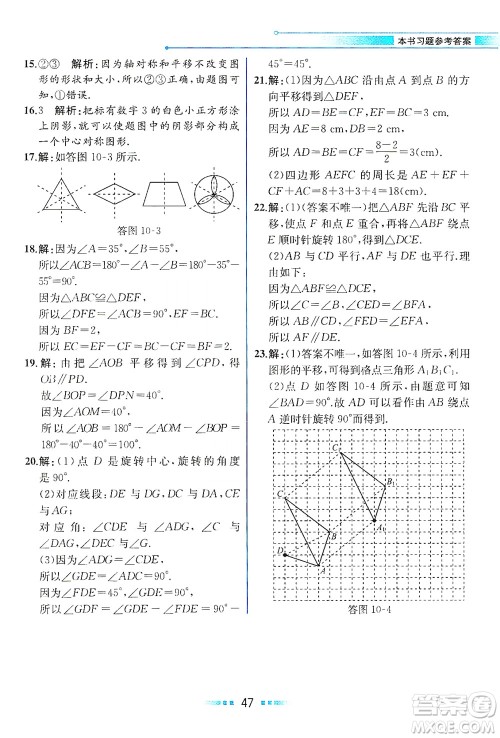 本书习题参考答案
15.②③ 解析:因为轴对称和平移不改变图
形的形状和大小,故②③正确,由旋转的性
质可知,①错误.
16.3 解析:把标有数字 3 的白色小正方形涂
上阴影,就可以使题图中的阴影部分构成
一个中心对称图形.
17.解:如答图 10-3 所示.
答图 10-3
18.解:因为∠A=35°,∠B=55°,
所以∠ACB=180°-∠A-∠B=180°-35°-
55°=90°.
因为△ABC≌△EFC,
所以∠ECF=∠ACB=90°,BC=CF.
因为 BF=2,
所以 EC=EF-CF=EF-BC=BF=2.
19.解:由把∠AOB 平移得到∠CPD,得
OB∥PD.
故∠BOP=∠DPN=40°.
因为∠AOM=40°,
所以∠AOB=180°-∠AOM-∠BOP=
180°-40°-40°=100°.
20.解:(1)点 D 是旋转中心,旋转的角度
是 90°.
(2)对应线段:DC 与 DA,DE 与 DG,CE
与 AG;
对应角:∠CDE 与∠ADG,∠C 与
∠DAG,∠DEC 与∠G.
(3)因为∠GDE=90°,∠GDE=45°,
所以∠GDF=∠GDE-∠FDE=90°-
45°=45°.
21.解:(1)因为△ABC 沿由点 A 到点 B 的方
向平移得到△DEF,
所以 AD=BE=CF,BC=EF.
因为 AE=8 cm,DB=2 cm,
所以 AD=BE=CF=8-2/2=3(cm).
(2)四边形 AEFC 的周长是 AE+EF+
CF+AC=8+3+3+4=18(cm).
22.解:(1)(答案不唯一)把△ABF 先沿 AD 平
移,使点 F 和点 E 重合,再将△ABF 绕点
E 顺时针旋转 180°,得到△DCE.
(2)AB 与 CD 平行,AF 与 DE 也平行.理
由如下:
因为△ABF≌△DCE,
所以∠B=∠C,∠BFA=∠CED.
所以 AB∥CD,∠AFE=∠DEF.
所以 AF∥DE.
23.解:(1)答案不唯一,如答图 10-4,利用
图形的平移,可得到格点三角形 A₁B₁C₁.
(2)点 D 如答图 10-4 所示,由题意可知
线段 AD 可以看作由线段 AB 绕着点
A 逆时针旋转 90°而得到.
C₁
B₁
A₁
C
B
D
A
答图 10-4
47
作业帮